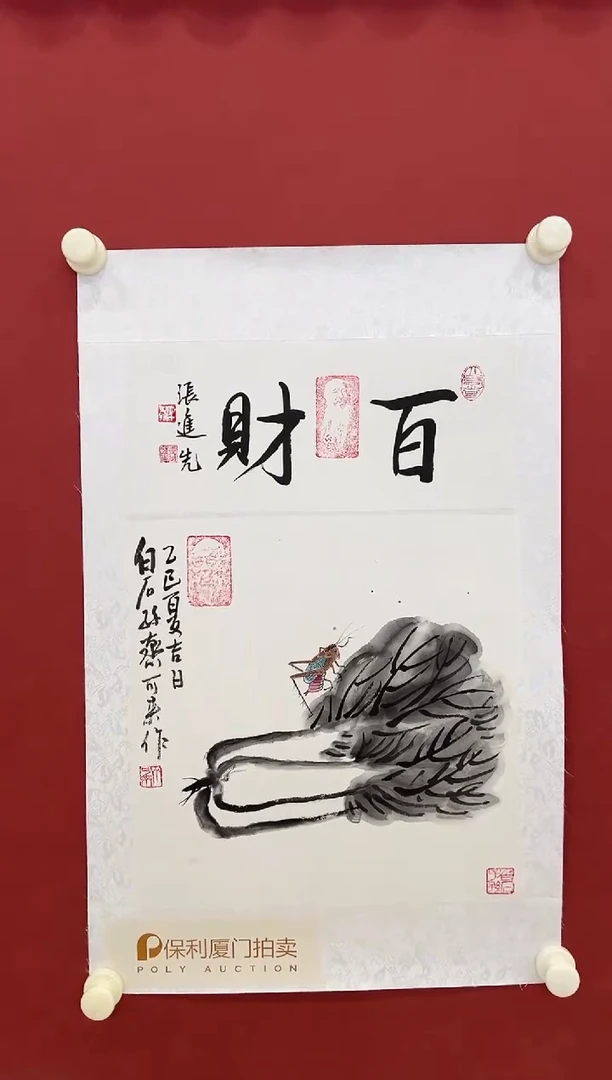 百財
張進先
乙巳夏吉日
白石孙齊可来作
保利厦门拍卖
POLY AUCTION